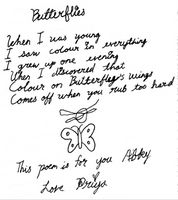 Butterflies
When I was young
I saw colour in everything
I grew up one evening
When I discovered that
Colour on Butterfley's wings
Comes off when you rub too hard
This poem is for you Abby
Love Priya